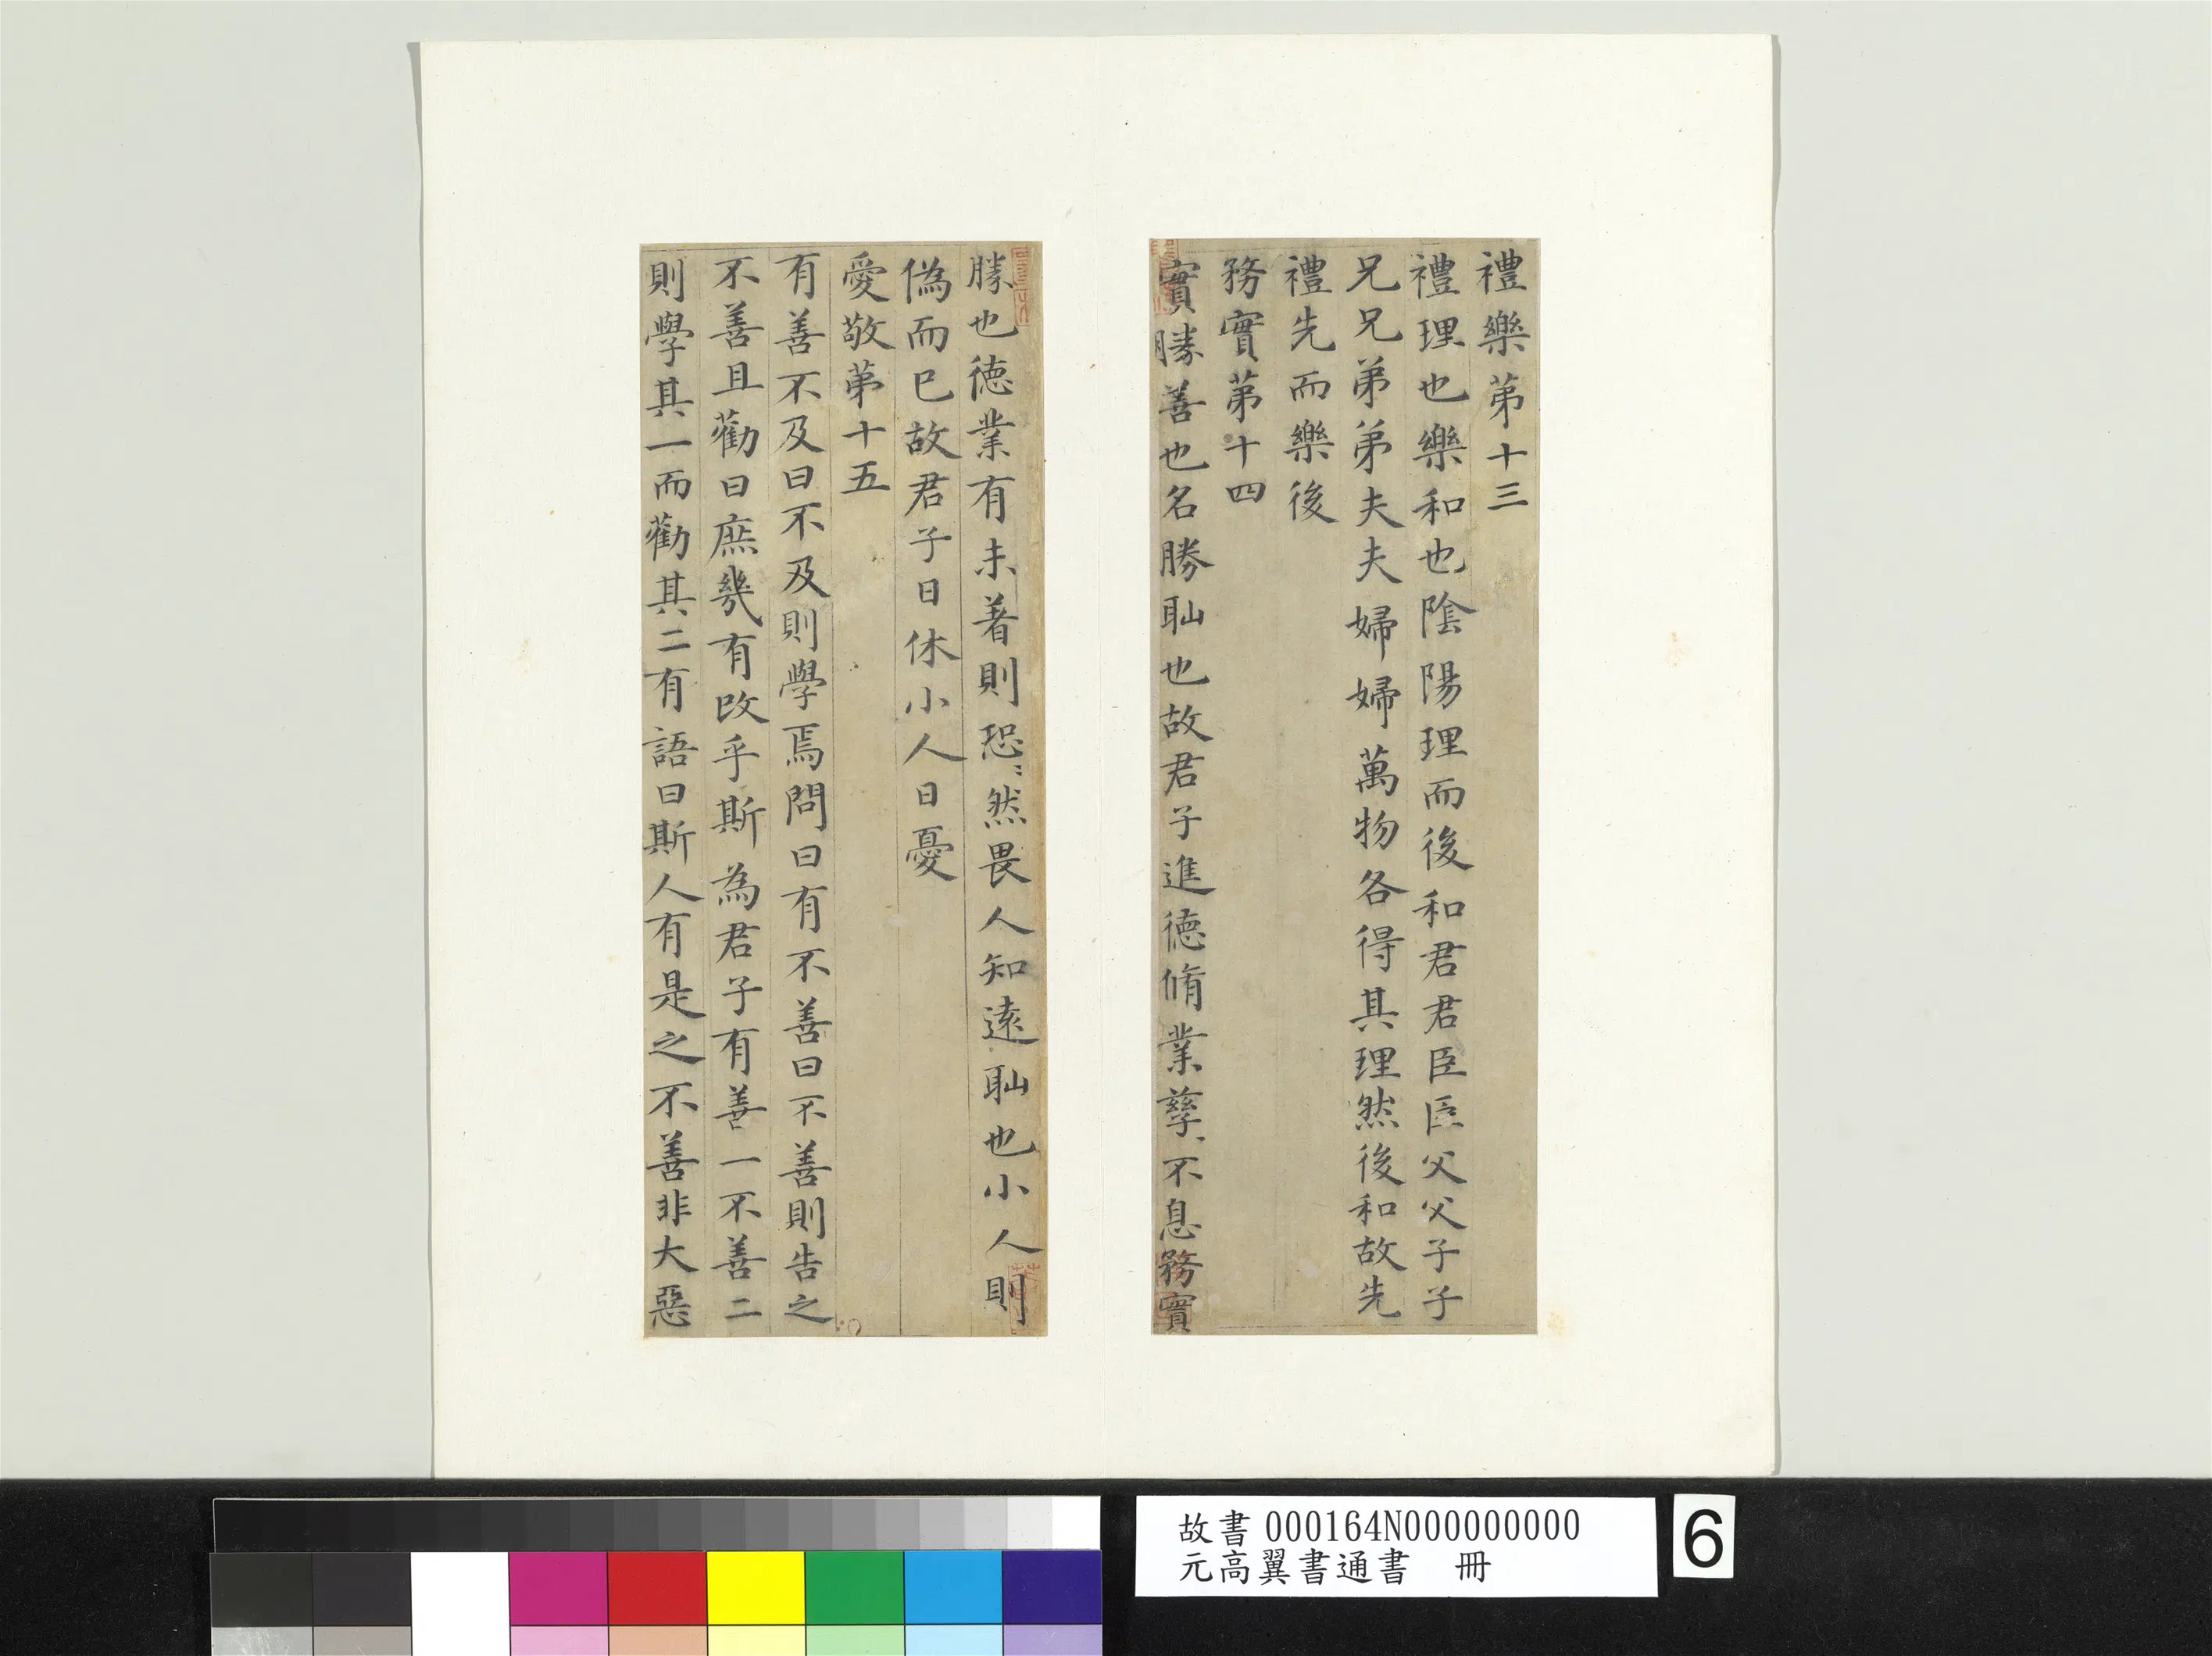 禮樂苐十三
禮理也樂和也陰陽理而後和君君臣臣父父子子
兄兄弟弟夫夫婦婦萬物各得其理然後和故先
禮先而樂後
務實苐十四
實勝善也名勝恥也故君子進德脩業孳〻不息務實
勝也德業有未著則恐〻然畏人知遠恥也小人則
偽而已故君子日休小人日憂
愛敬苐十五
有善不及曰不及則學焉問曰有不善曰不善則告之
不善且勸曰庶幾有改乎斯為君子有善一不善二
則學其一而勸其二有語曰斯人有是之不善非大惡
故書 000164N000000000
元高翼書通書 冊
6